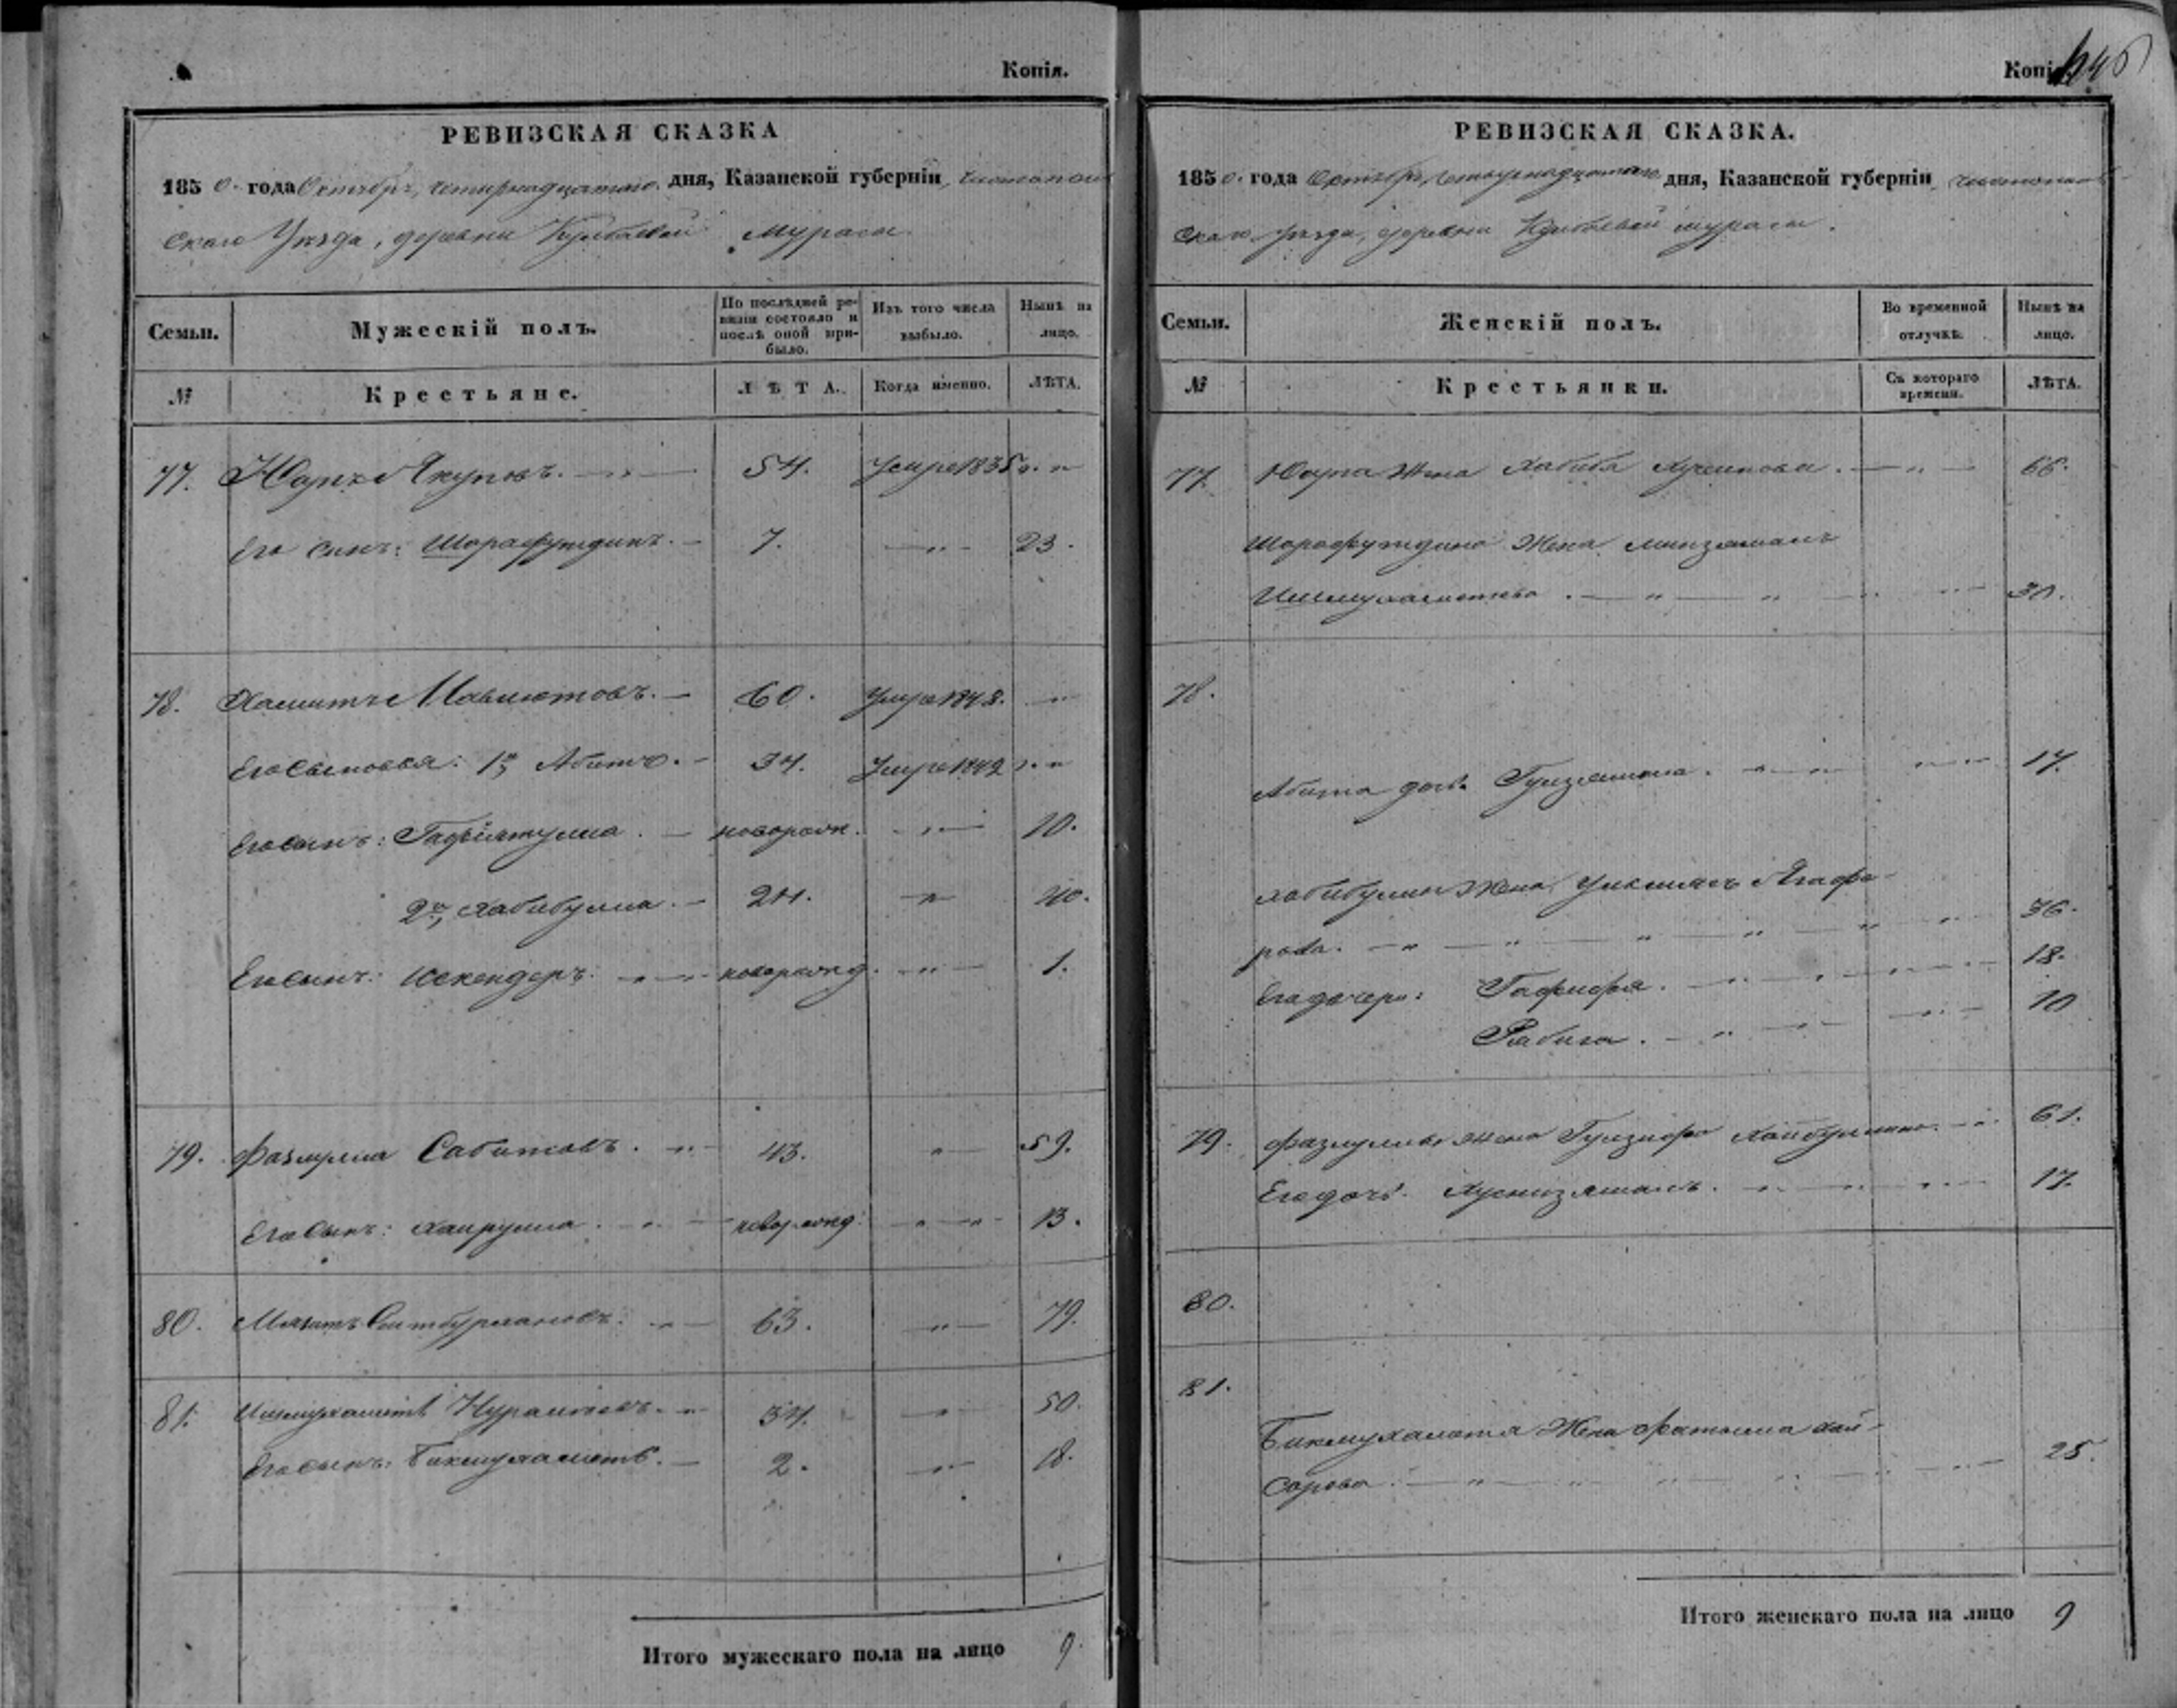 Копія.
РЕВИЗСКАЯ СКАЗКА
1850 года Октября четырнадцатаго дня, Казанской губерніи, Чистополь
скаго Уѣзда, деревни Кулбаевой Мурасы
Семьи.
Мужескій полъ.
По послѣдней ре-
визіи состояло и
послѣ оной при-
было.
Изъ того числа
выбыло.
Нынѣ на
лицо.
№
Крестьяне.
ЛѢТА.
Когда именно.
ЛѢТА.
77. Якуповъ. 54. Умре 1835
Его сынъ: Шарафутдинъ. 7. 23.
78. Хамитъ Мавлютовъ. 60. Умре 1848.
Его сыновья: 1й, Абитъ. 34. Умре 1842
Его сынъ: Гафіятулла. новорож. 10.
2й, Хабибулла. 24. 40.
Его сынъ: Искендеръ. новорожд. 1.
79. Фазлулла Сабитовъ. 43. 59.
Его сынъ: Хайрулла. новорожд. 13.
80. 63. 79.
81. Ишмухаметъ 34. 50.
Его сынъ: Бикмухаметъ. 2. 18.
Итого мужескаго пола на лицо 9.
Копія.
РЕВИЗСКАЯ СКАЗКА.
1850. года Октября четырнадцатаго дня, Казанской губерніи, Чистополь
скаго уѣзда, деревни Кулбаевой мурасы.
Семьи.
Женскій полъ.
Во временной
отлучкѣ.
Нынѣ на
лицо.
№
Крестьянки.
Съ котораго
времени.
ЛѢТА.
77. жена Хабиба 66.
Шарафутдина жена Минзямалъ
Ишмухаметова. 30.
78.
Абита дочь Гулзямила. 17.
Хабибуллы жена Ягафа-
рова. 36.
Его дочери: Гафифя. 18.
Рабига. 10
79. Фазлуллы жена Гулзифа Хайбуллина. 61.
Его дочь. Хуснизямалъ. 17.
80.
81.
Бикмухаметя жена Фатыма Хай-
сарова. 25.
Итого женскаго пола на лицо 9